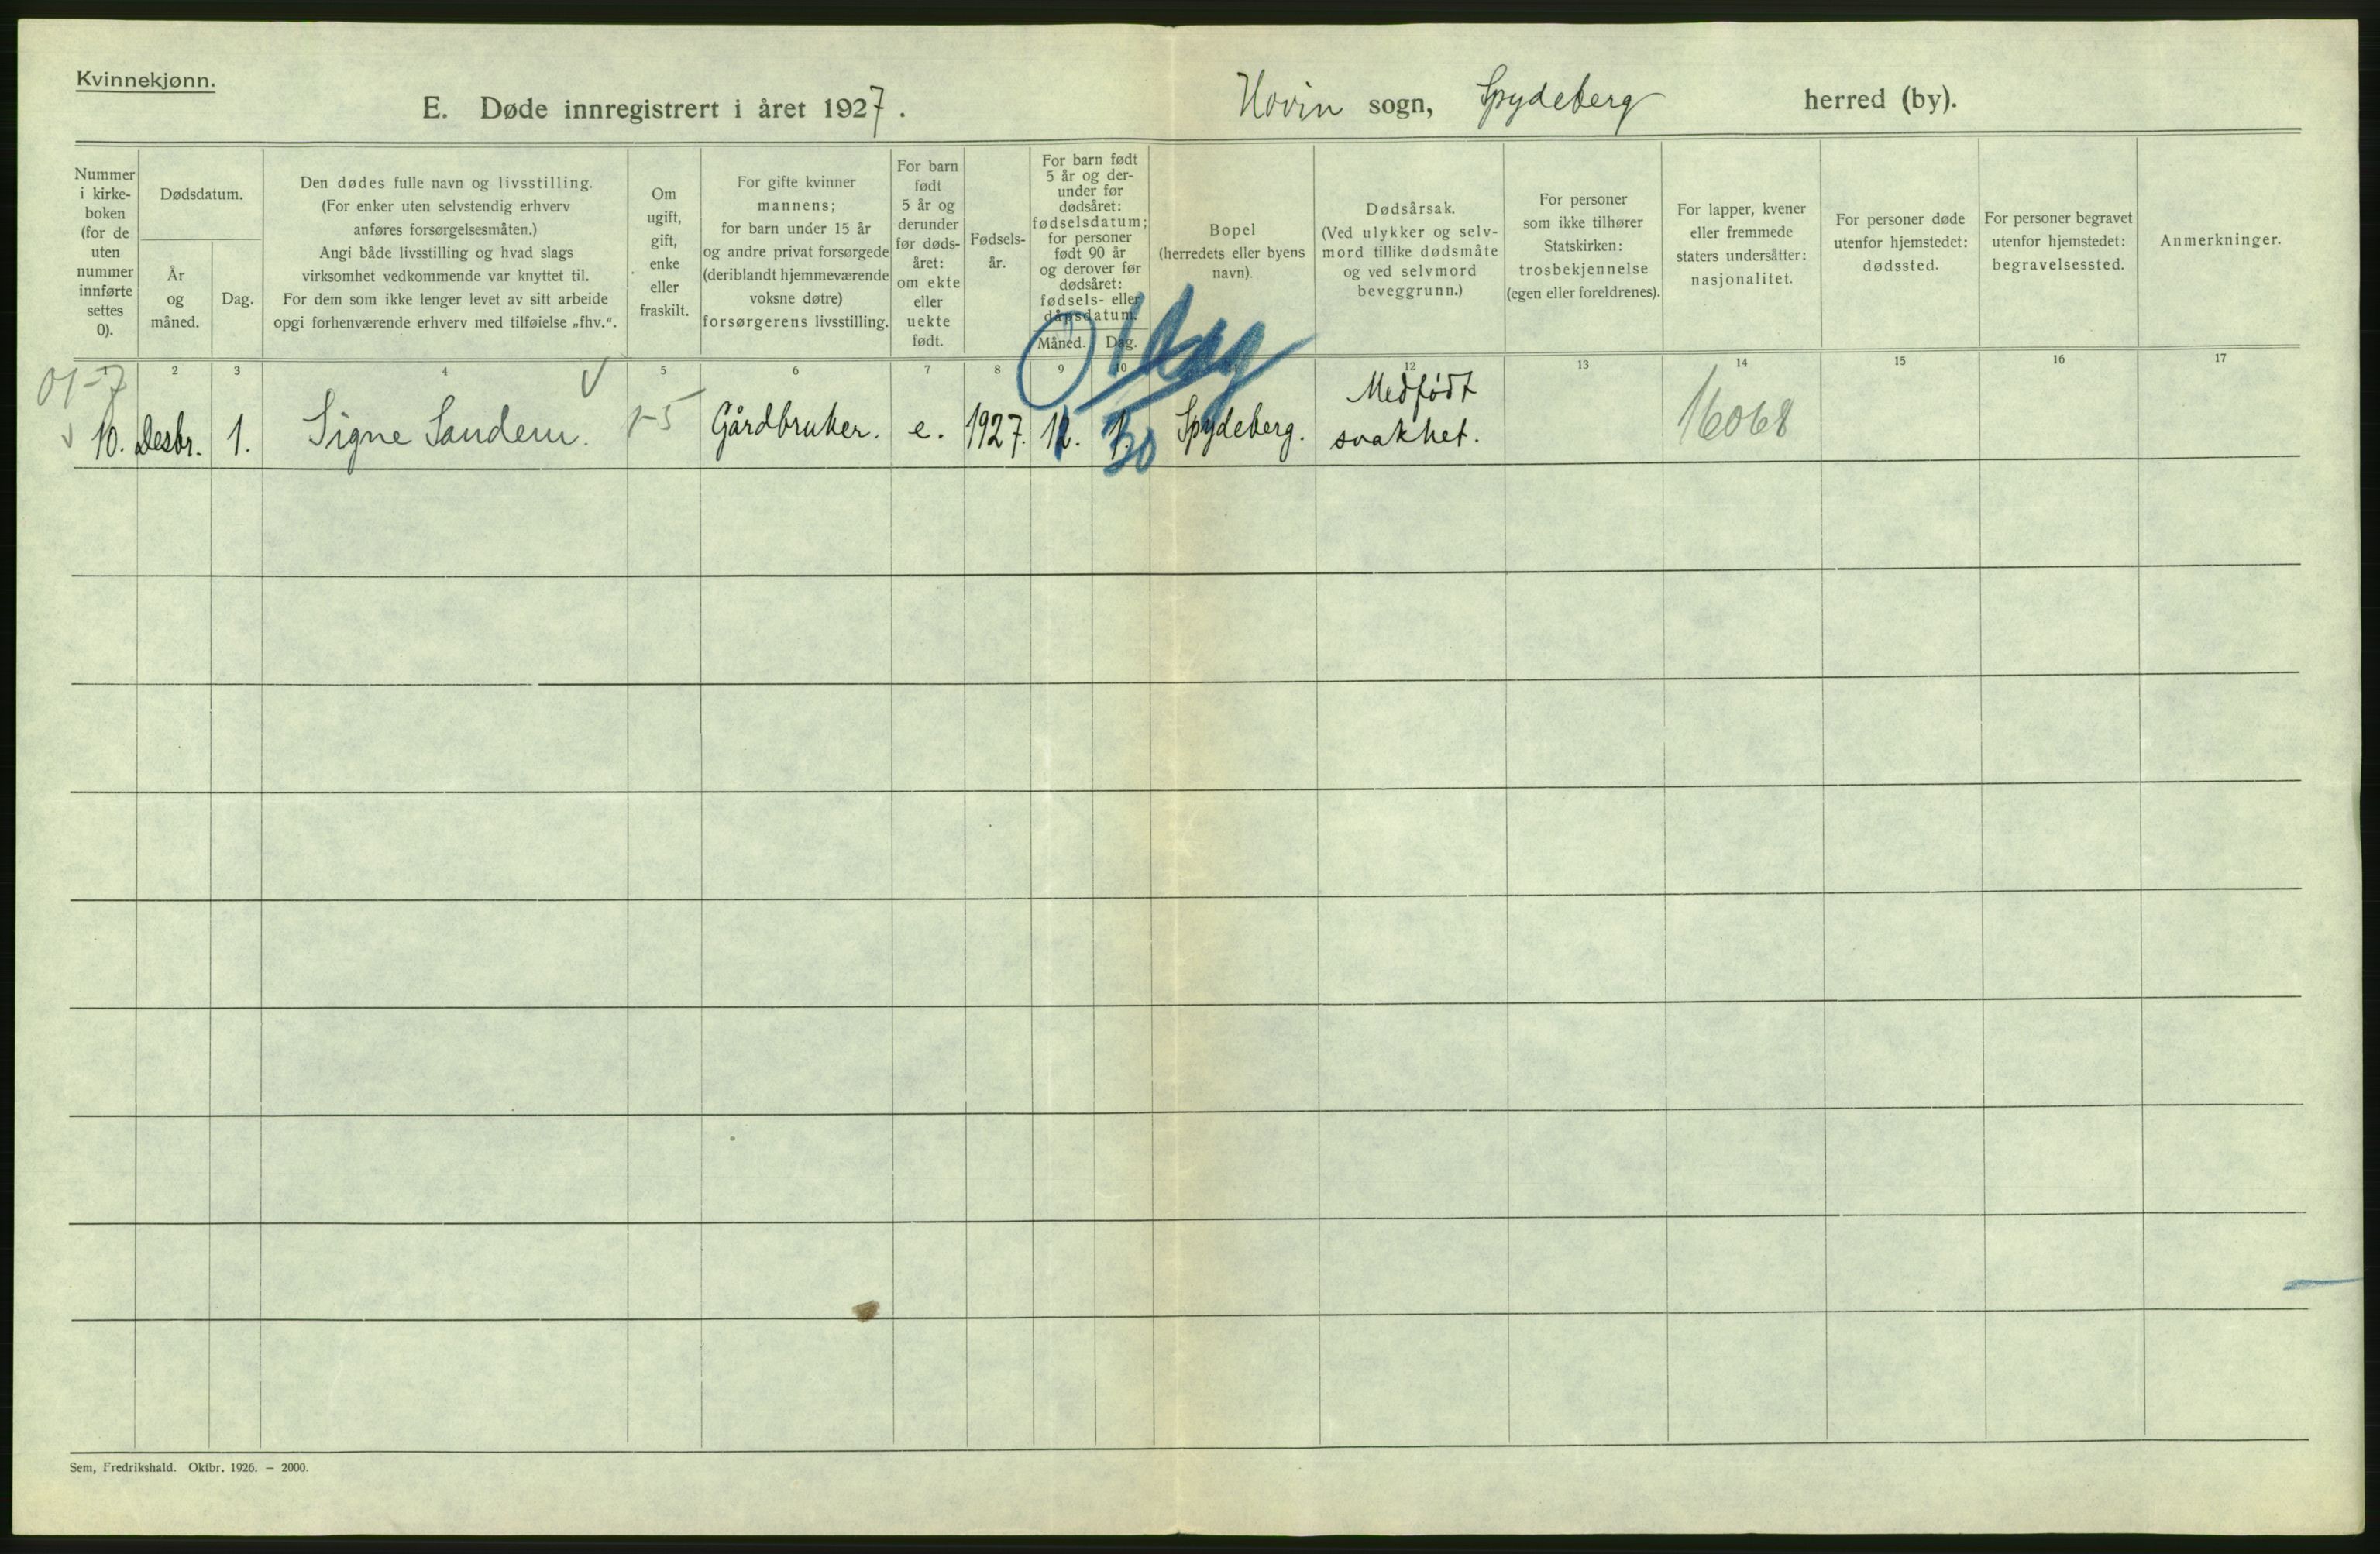 Kvinnekjønn.
E. Døde innregistrert i året 1927.
Hovin sogn, Spydeberg herred (by).
Nummer
i kirke-
boken
(for de
uten
nummer
innførte
settes
0).
Dødsdatum.
År
og
måned.
Dag.
Den dødes fulle navn og livsstilling.
(For enker uten selvstendig erhverv
anføres forsørgelsesmåten.)
Angi både livsstilling og hvad slags
virksomhet vedkommende var knyttet til.
For dem som ikke lenger levet av sitt arbeide
opgi forhenværende erhverv med tilføielse „fhv.“.
Om
ugift,
gift,
enke
eller
fraskilt.
For gifte kvinner
mannens;
for barn under 15 år
og andre privat forsørgede
(deriblandt hjemmeværende
voksne døtre)
forsørgerens livsstilling.
For barn
født
5 år og
derunder
før døds-
året:
om ekte
eller
uekte
født.
Fødsels-
år.
For barn født
5 år og der-
under før
dødsåret:
fødselsdatum;
for personer
født 90 år
og derover før
dødsåret:
fødsels- eller
dåpsdatum.
Måned.
Dag.
Bopel
(herredets eller byens
navn).
Dødsårsak.
(Ved ulykker og selv-
mord tillike dødsmåte
og ved selvmord
beveggrunn.)
For personer
som ikke tilhører
Statskirken:
trosbekjennelse
(egen eller foreldrenes).
For lapper, kvener
eller fremmede
staters undersåtter:
nasjonalitet.
For personer døde
utenfor hjemstedet:
dødssted.
For personer begravet
utenfor hjemstedet:
begravelsessted.
Anmerkninger.
1 2 3 4 5 6 7 8 9 10 11 12 13 14 15 16 17
01-7
0 dag
10. Desbr. 1. Signe Sandem. 1-5 Gårdbruker. e. 1927. 12. 1. Spydeberg. Medfødt
svakhet. 16068
30
Sem, Fredrikshald. Oktbr. 1926. — 2000.